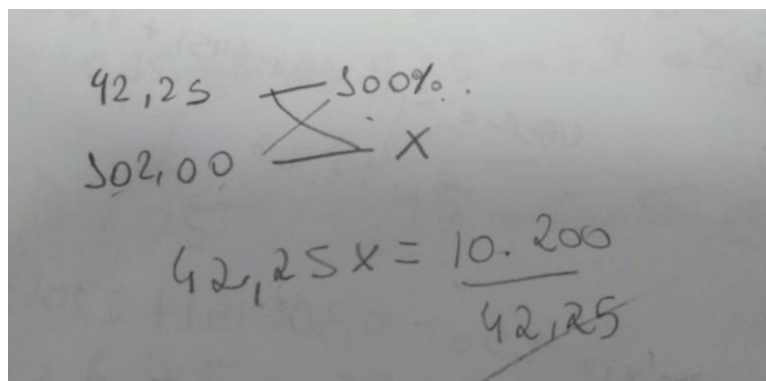 42,25 100%.
102,00 X
42,25x = 10.200
42,25